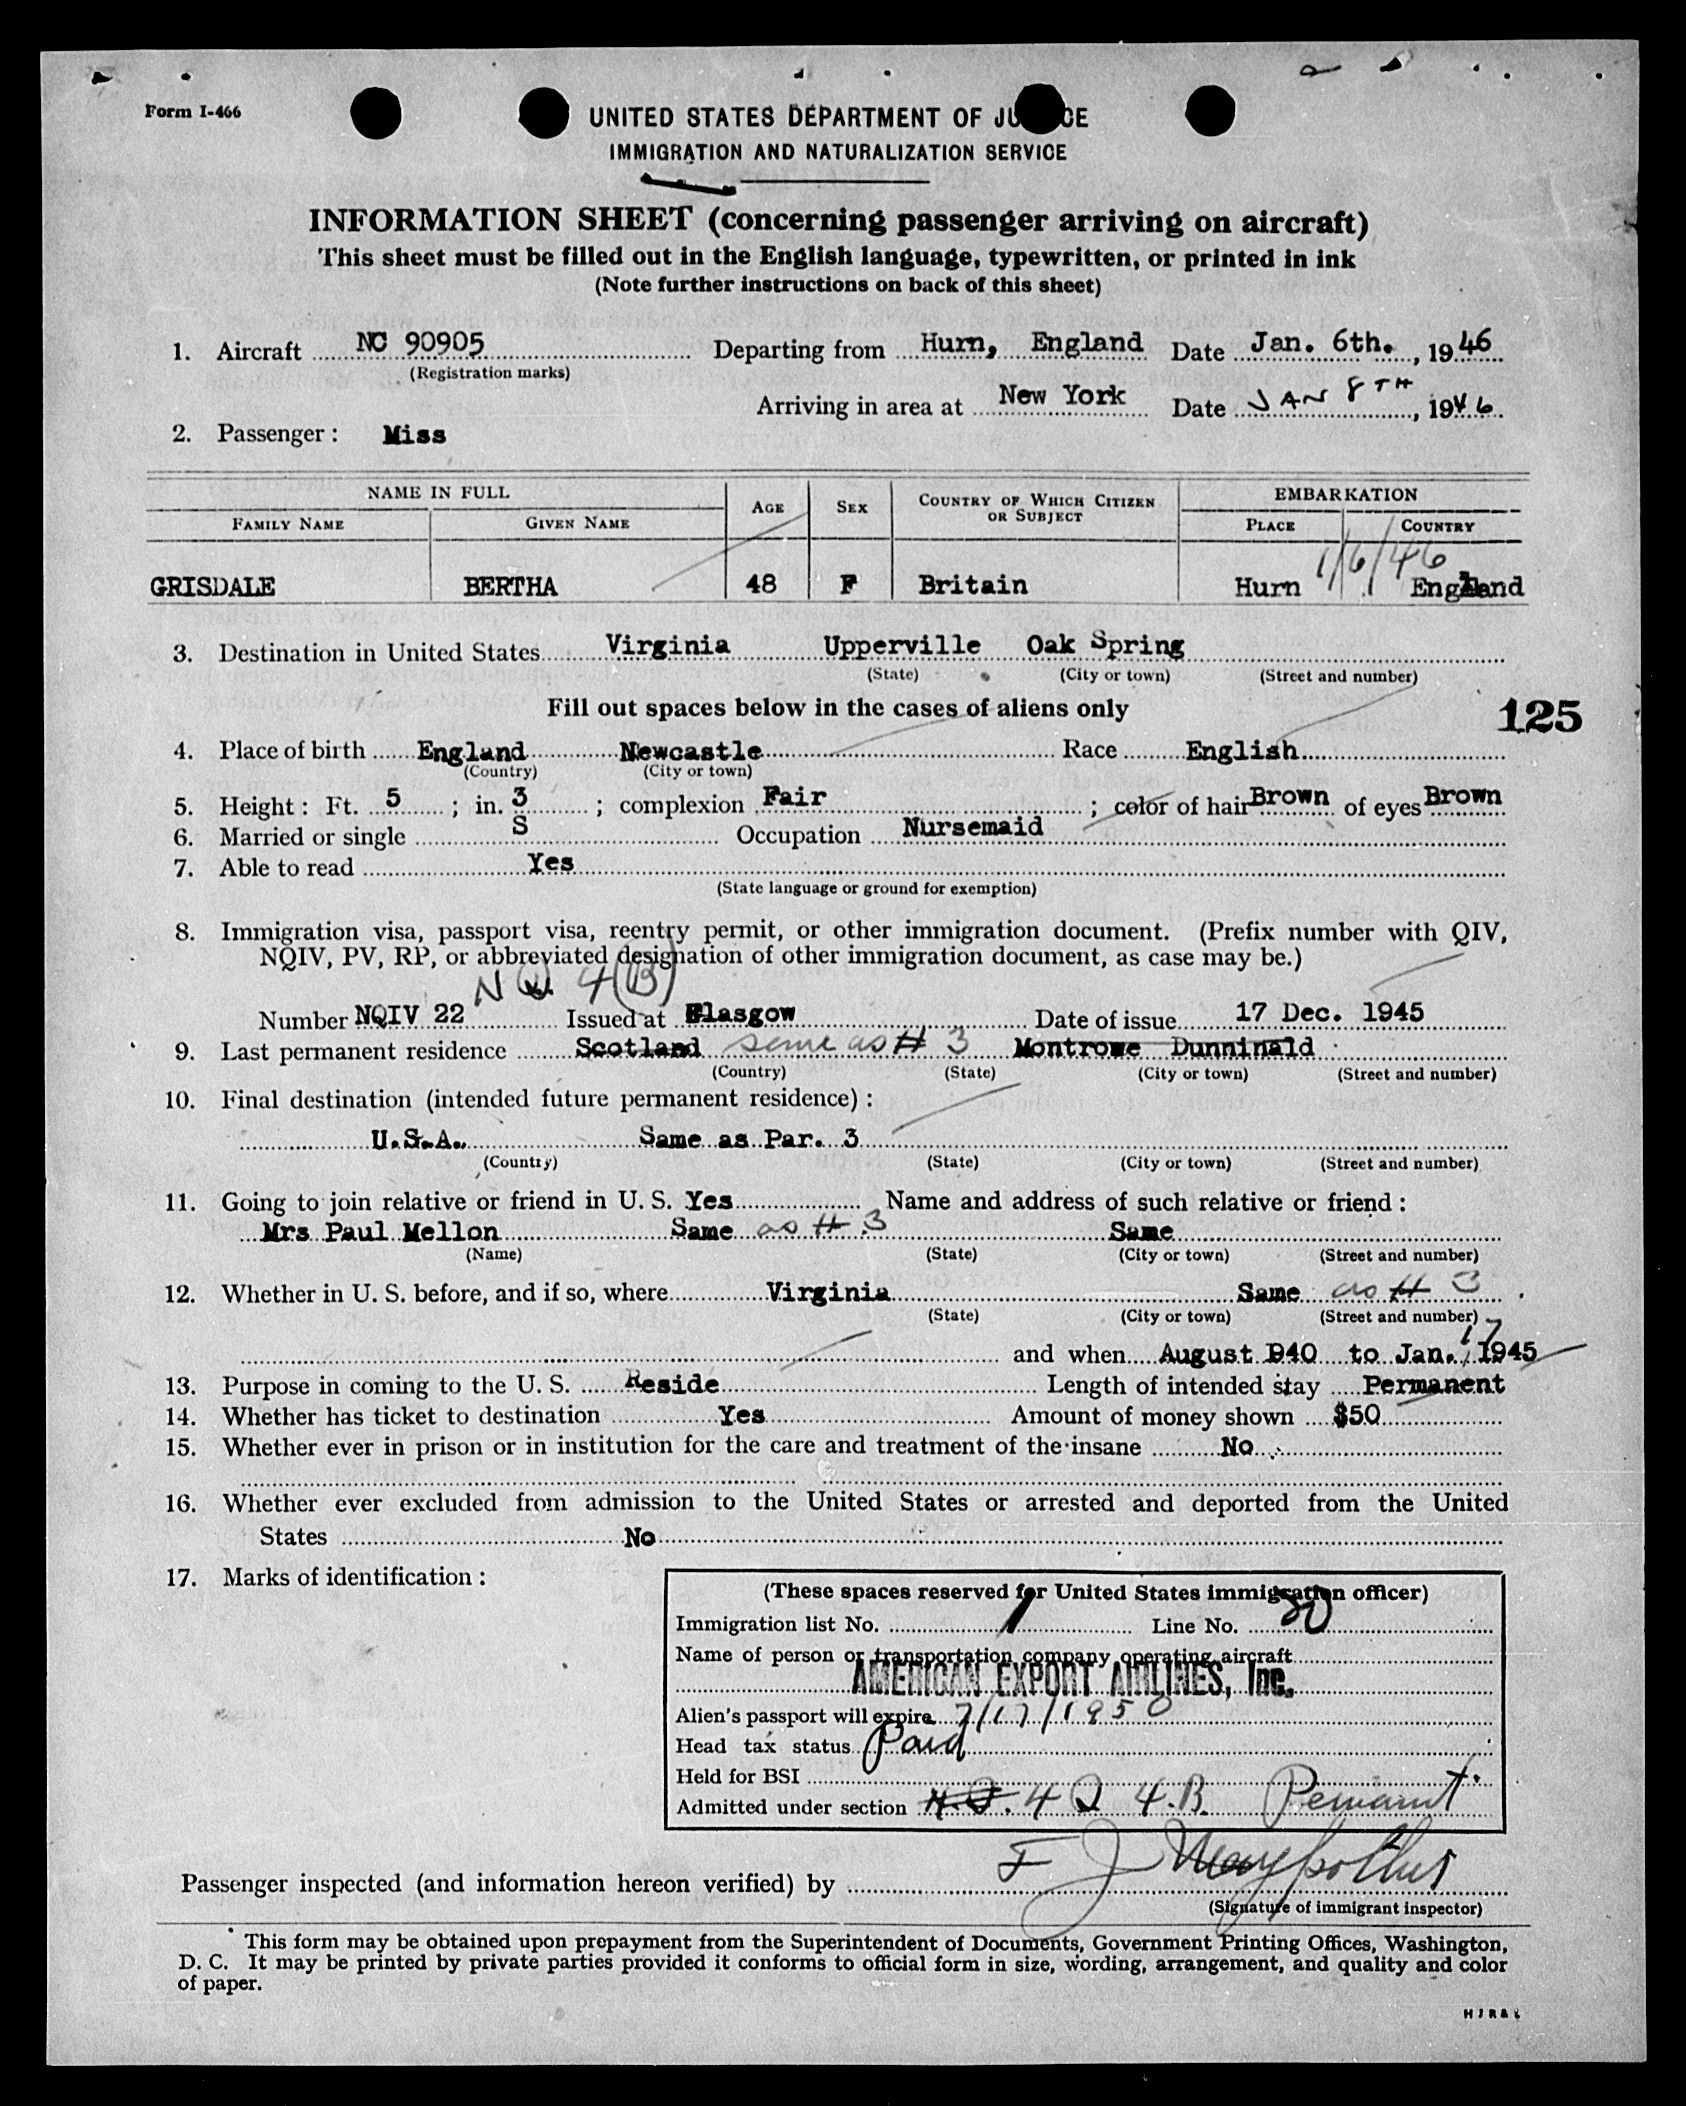 Form I-466
UNITED STATES DEPARTMENT OF JUSTICE
IMMIGRATION AND NATURALIZATION SERVICE
INFORMATION SHEET (concerning passenger arriving on aircraft)
This sheet must be filled out in the English language, typewritten, or printed in ink
(Note further instructions on back of this sheet)
1. Aircraft NC 90905 Departing from Hurn, England Date Jan. 6th. , 1946
(Registration marks)
Arriving in area at New York Date JAN 8TH , 1946
2. Passenger: Miss
NAME IN FULL AGE SEX COUNTRY OF WHICH CITIZEN OR SUBJECT EMBARKATION
FAMILY NAME GIVEN NAME PLACE COUNTRY
1/6/46
GRISDALE BERTHA 48 F Britain Hurn England
3. Destination in United States Virginia Upperville Oak Spring
(State) (City or town) (Street and number)
Fill out spaces below in the cases of aliens only
125
4. Place of birth England Newcastle Race English
(Country) (City or town)
5. Height: Ft. 5 ; in. 3 ; complexion Fair ; color of hair Brown of eyes Brown
6. Married or single S Occupation Nursemaid
7. Able to read Yes
(State language or ground for exemption)
8. Immigration visa, passport visa, reentry permit, or other immigration document. (Prefix number with QIV,
NQIV, PV, RP, or abbreviated designation of other immigration document, as case may be.)
N Q. 4(B)
Number NQIV 22 Issued at Glasgow Date of issue 17 Dec. 1945
9. Last permanent residence Scotland same as # 3 Montrowe Dunninald
(Country) (State) (City or town) (Street and number)
10. Final destination (intended future permanent residence):
U.S.A. Same as Par. 3
(Country) (State) (City or town) (Street and number)
11. Going to join relative or friend in U. S. Yes Name and address of such relative or friend:
Mrs Paul Mellon Same as # 3 Same
(Name) (State) (City or town) (Street and number)
12. Whether in U. S. before, and if so, where Virginia Same as # 3
(State) (City or town) (Street and number)
and when August 1940 to Jan. 17, 1945
13. Purpose in coming to the U. S. Reside Length of intended stay Permanent
14. Whether has ticket to destination Yes Amount of money shown $50
15. Whether ever in prison or in institution for the care and treatment of the insane No
16. Whether ever excluded from admission to the United States or arrested and deported from the United
States No
17. Marks of identification:
(These spaces reserved for United States immigration officer)
Immigration list No. 1 Line No. 20
Name of person or transportation company operating aircraft
AMERICAN EXPORT AIRLINES, Inc.
Alien's passport will expire 7/17/1950
Head tax status Paid
Held for BSI
Admitted under section N.Q. 4 Q 4.B.
Passenger inspected (and information hereon verified) by F J
(Signature of immigrant inspector)
This form may be obtained upon prepayment from the Superintendent of Documents, Government Printing Offices, Washington,
D. C. It may be printed by private parties provided it conforms to official form in size, wording, arrangement, and quality and color
of paper.